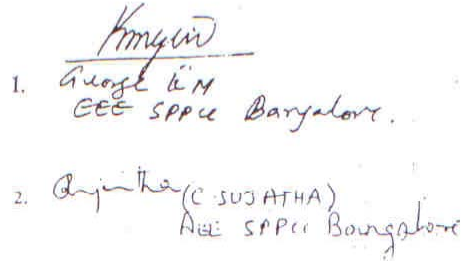 1. George K M
EEE SPPCC Bangalore.
2. Sujatha (C. SUJATHA)
AEE SPPCC Bangalore